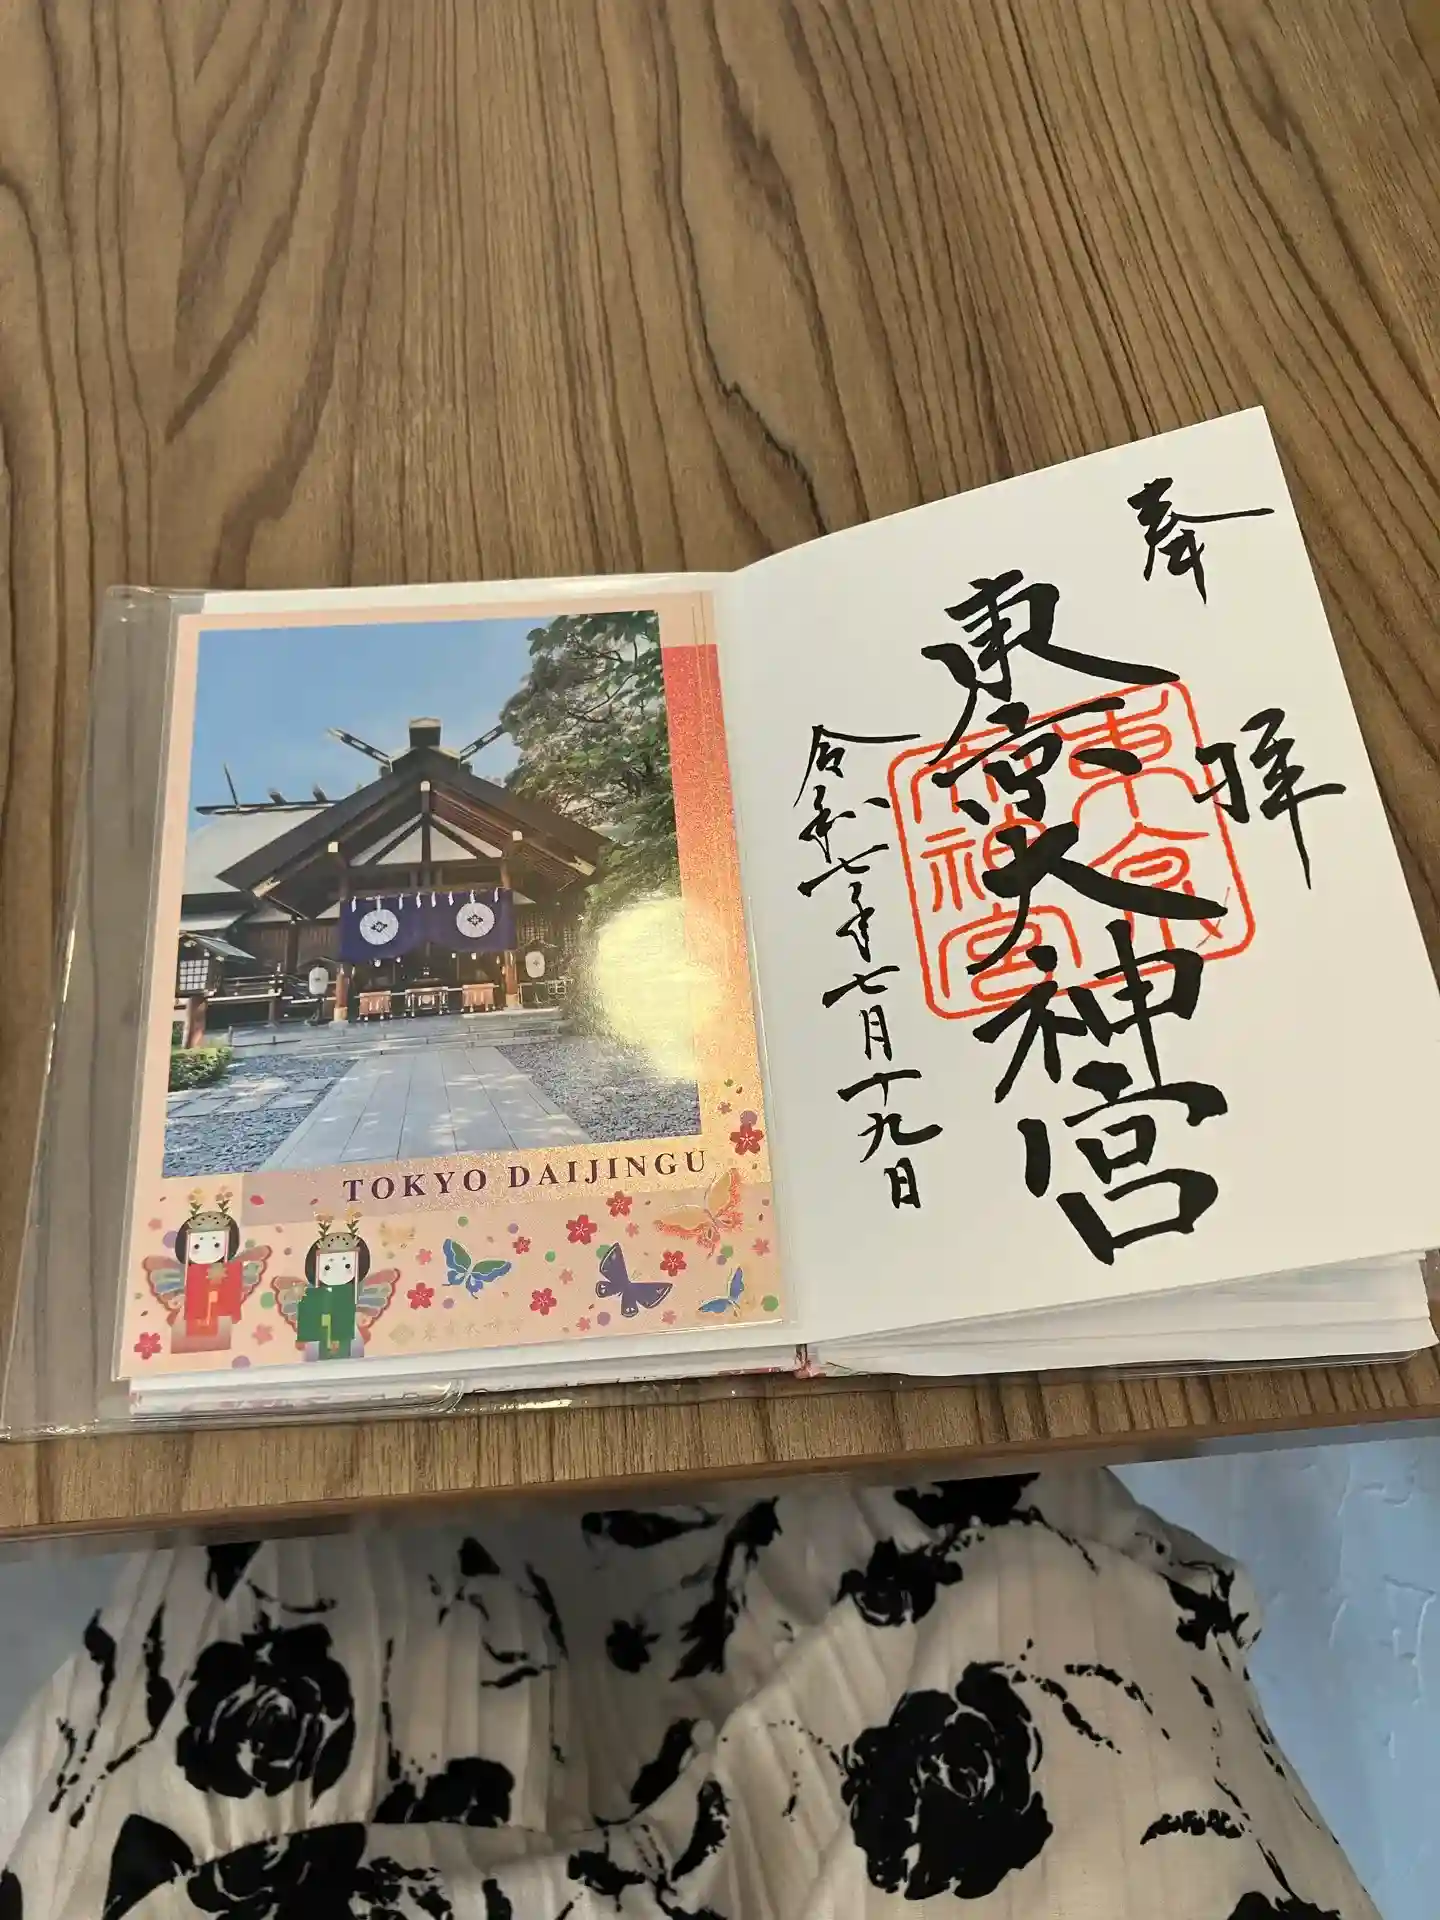 TOKYO DAIJINGU
東京大神宮
奉拝
東京大神宮
東京大神宮
令和七年七月十九日